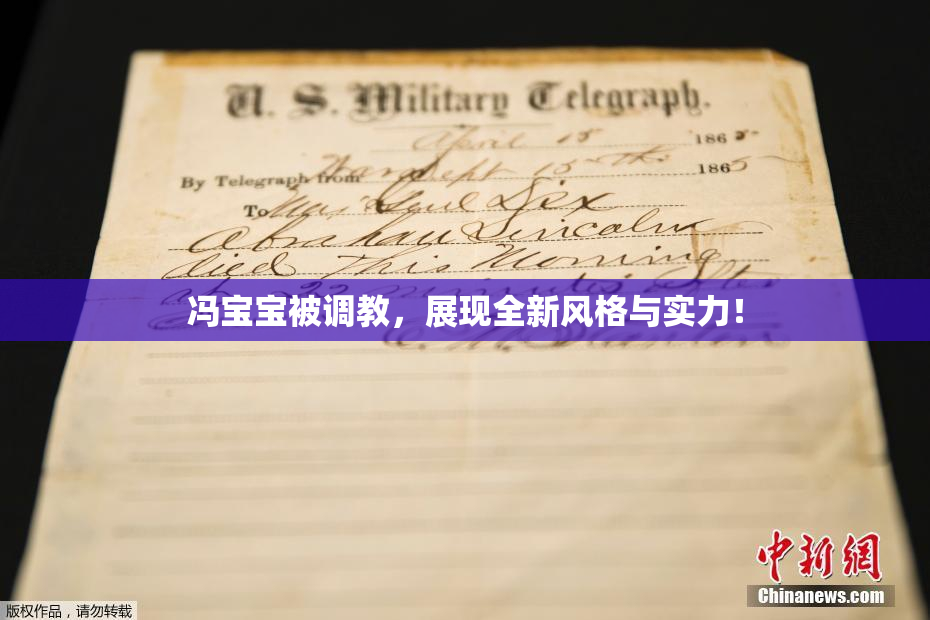 U. S. Military Telegraph.
April 15 1865
By Telegraph from War Dept 15th 1865
To Maj Genl Dix
Abraham Lincoln
died This Morning
at 22 minutes after
冯宝宝被调教，展现全新风格与实力！
E. M. Stanton
中新網
Chinanews.com
版权作品，请勿转载